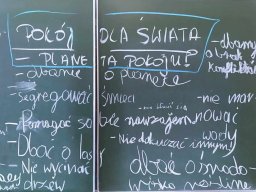 POKÓJ DLA ŚWIATA
– PLANETA POKOJU!
– dbanie o planetę
– dbamy o brak konfliktów
– Segregować śmieci
– nie marnować wody
– Pomagać sobie nawzajem
– Nie dokuczać innym!
– Dbać o las
– Nie wycinać drzew
dbać o środo-